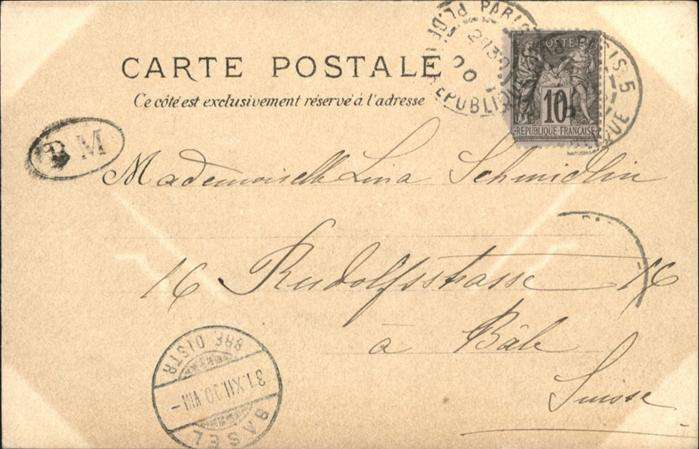 PARIS 5
PL. DE LA RÉPUBLIQUE
00
POSTES
10
REPUBLIQUE FRANÇAISE
CARTE POSTALE
Ce côté est exclusivement réservé à l'adresse
B M
Mademoiselle Lina Schmidlin
16 Rudolfsstrasse 16
à Bâle
Suisse
BASEL
31.XII.00.VIII–
BRF. DISTR.